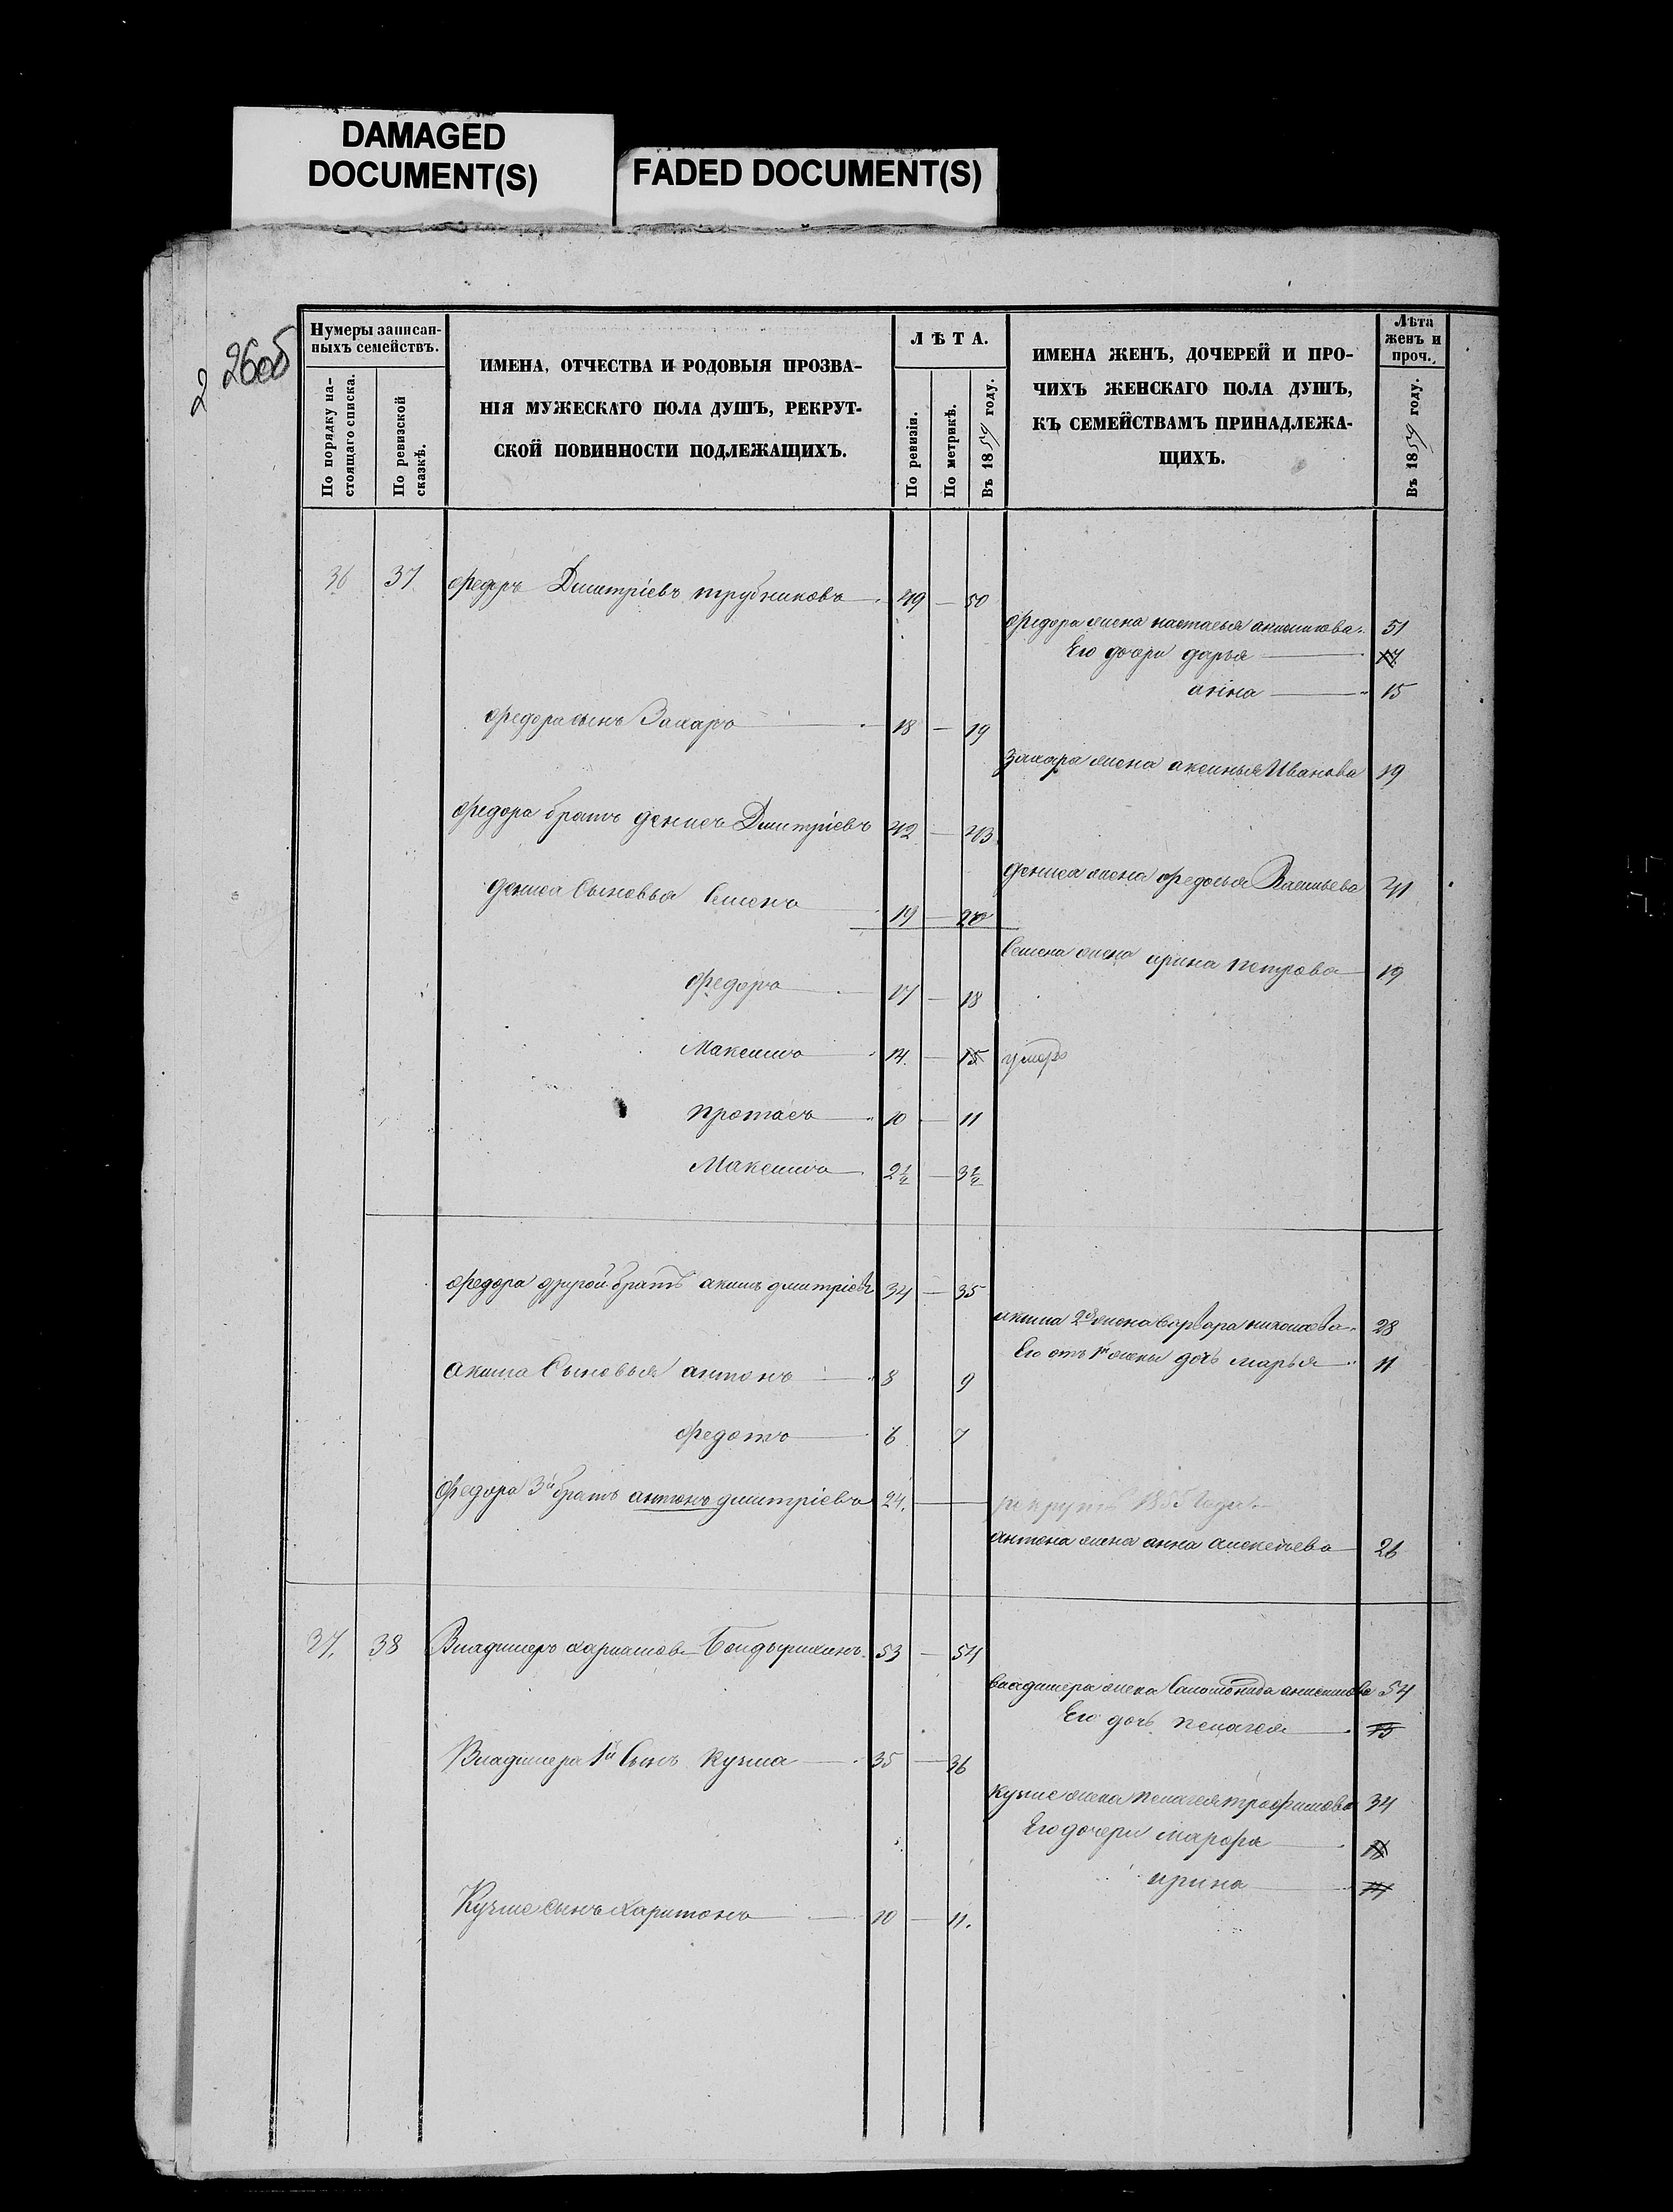 DAMAGED
DOCUMENT(S)
FADED DOCUMENT(S)
26об
2
Нумеры записан-
ныхъ семействъ.
По порядку на-
стоящаго списка.
По ревизской
сказкѣ.
ИМЕНА, ОТЧЕСТВА И РОДОВЫЯ ПРОЗВА-
НІЯ МУЖЕСКАГО ПОЛА ДУШЪ, РЕКРУТ-
СКОЙ ПОВИННОСТИ ПОДЛЕЖАЩИХЪ.
ЛѢТА.
По ревизіи.
По метрикѣ.
Въ 1859 году.
ИМЕНА ЖЕНЪ, ДОЧЕРЕЙ И ПРО-
ЧИХЪ ЖЕНСКАГО ПОЛА ДУШЪ,
КЪ СЕМЕЙСТВАМЪ ПРИНАДЛЕЖА-
ЩИХЪ.
Лѣта
женъ и
проч.
Въ 1859 году.
36 37 Федоръ Дмитріевъ трубниковъ 49 — 50
Федора жена настасья 51
Его дочери дарья 17
анна 15
Федора сынъ Захаръ 18 — 19
Захара жена аксинья Иванова 19
Федора братъ денисъ Дмитріевъ 42 — 43
дениса жена федосья Васильева 41
дениса Сыновья Семенъ 19 — 20
Семена жена ирина петрова 19
федоръ 17 — 18
Максимъ 14 — 15 умеръ
протасъ 10 — 11
Максимъ 2½ — 3½
Федора другой братъ акимъ дмитріевъ 34 — 35
акима 2я жена варвара николаева 28
Его отъ 1й жены дочь марья 11
акима Сыновья антонъ 8 9
федотъ 6 7
Федора 3й братъ антонъ дмитріевъ 24. — рекрутъ 1855 года
антона жена анна алексѣева 26
37. 38 Владимеръ 53 — 54
Владимера жена Соломонида анисимова 54
Его дочь пелагея 15
Владимера 1й Сынъ Кузма 35 — 36
Кузме жена пелагея трофимова 34
Его дочери марфа
ирина
Кузме сынъ харитонъ 10 — 11.